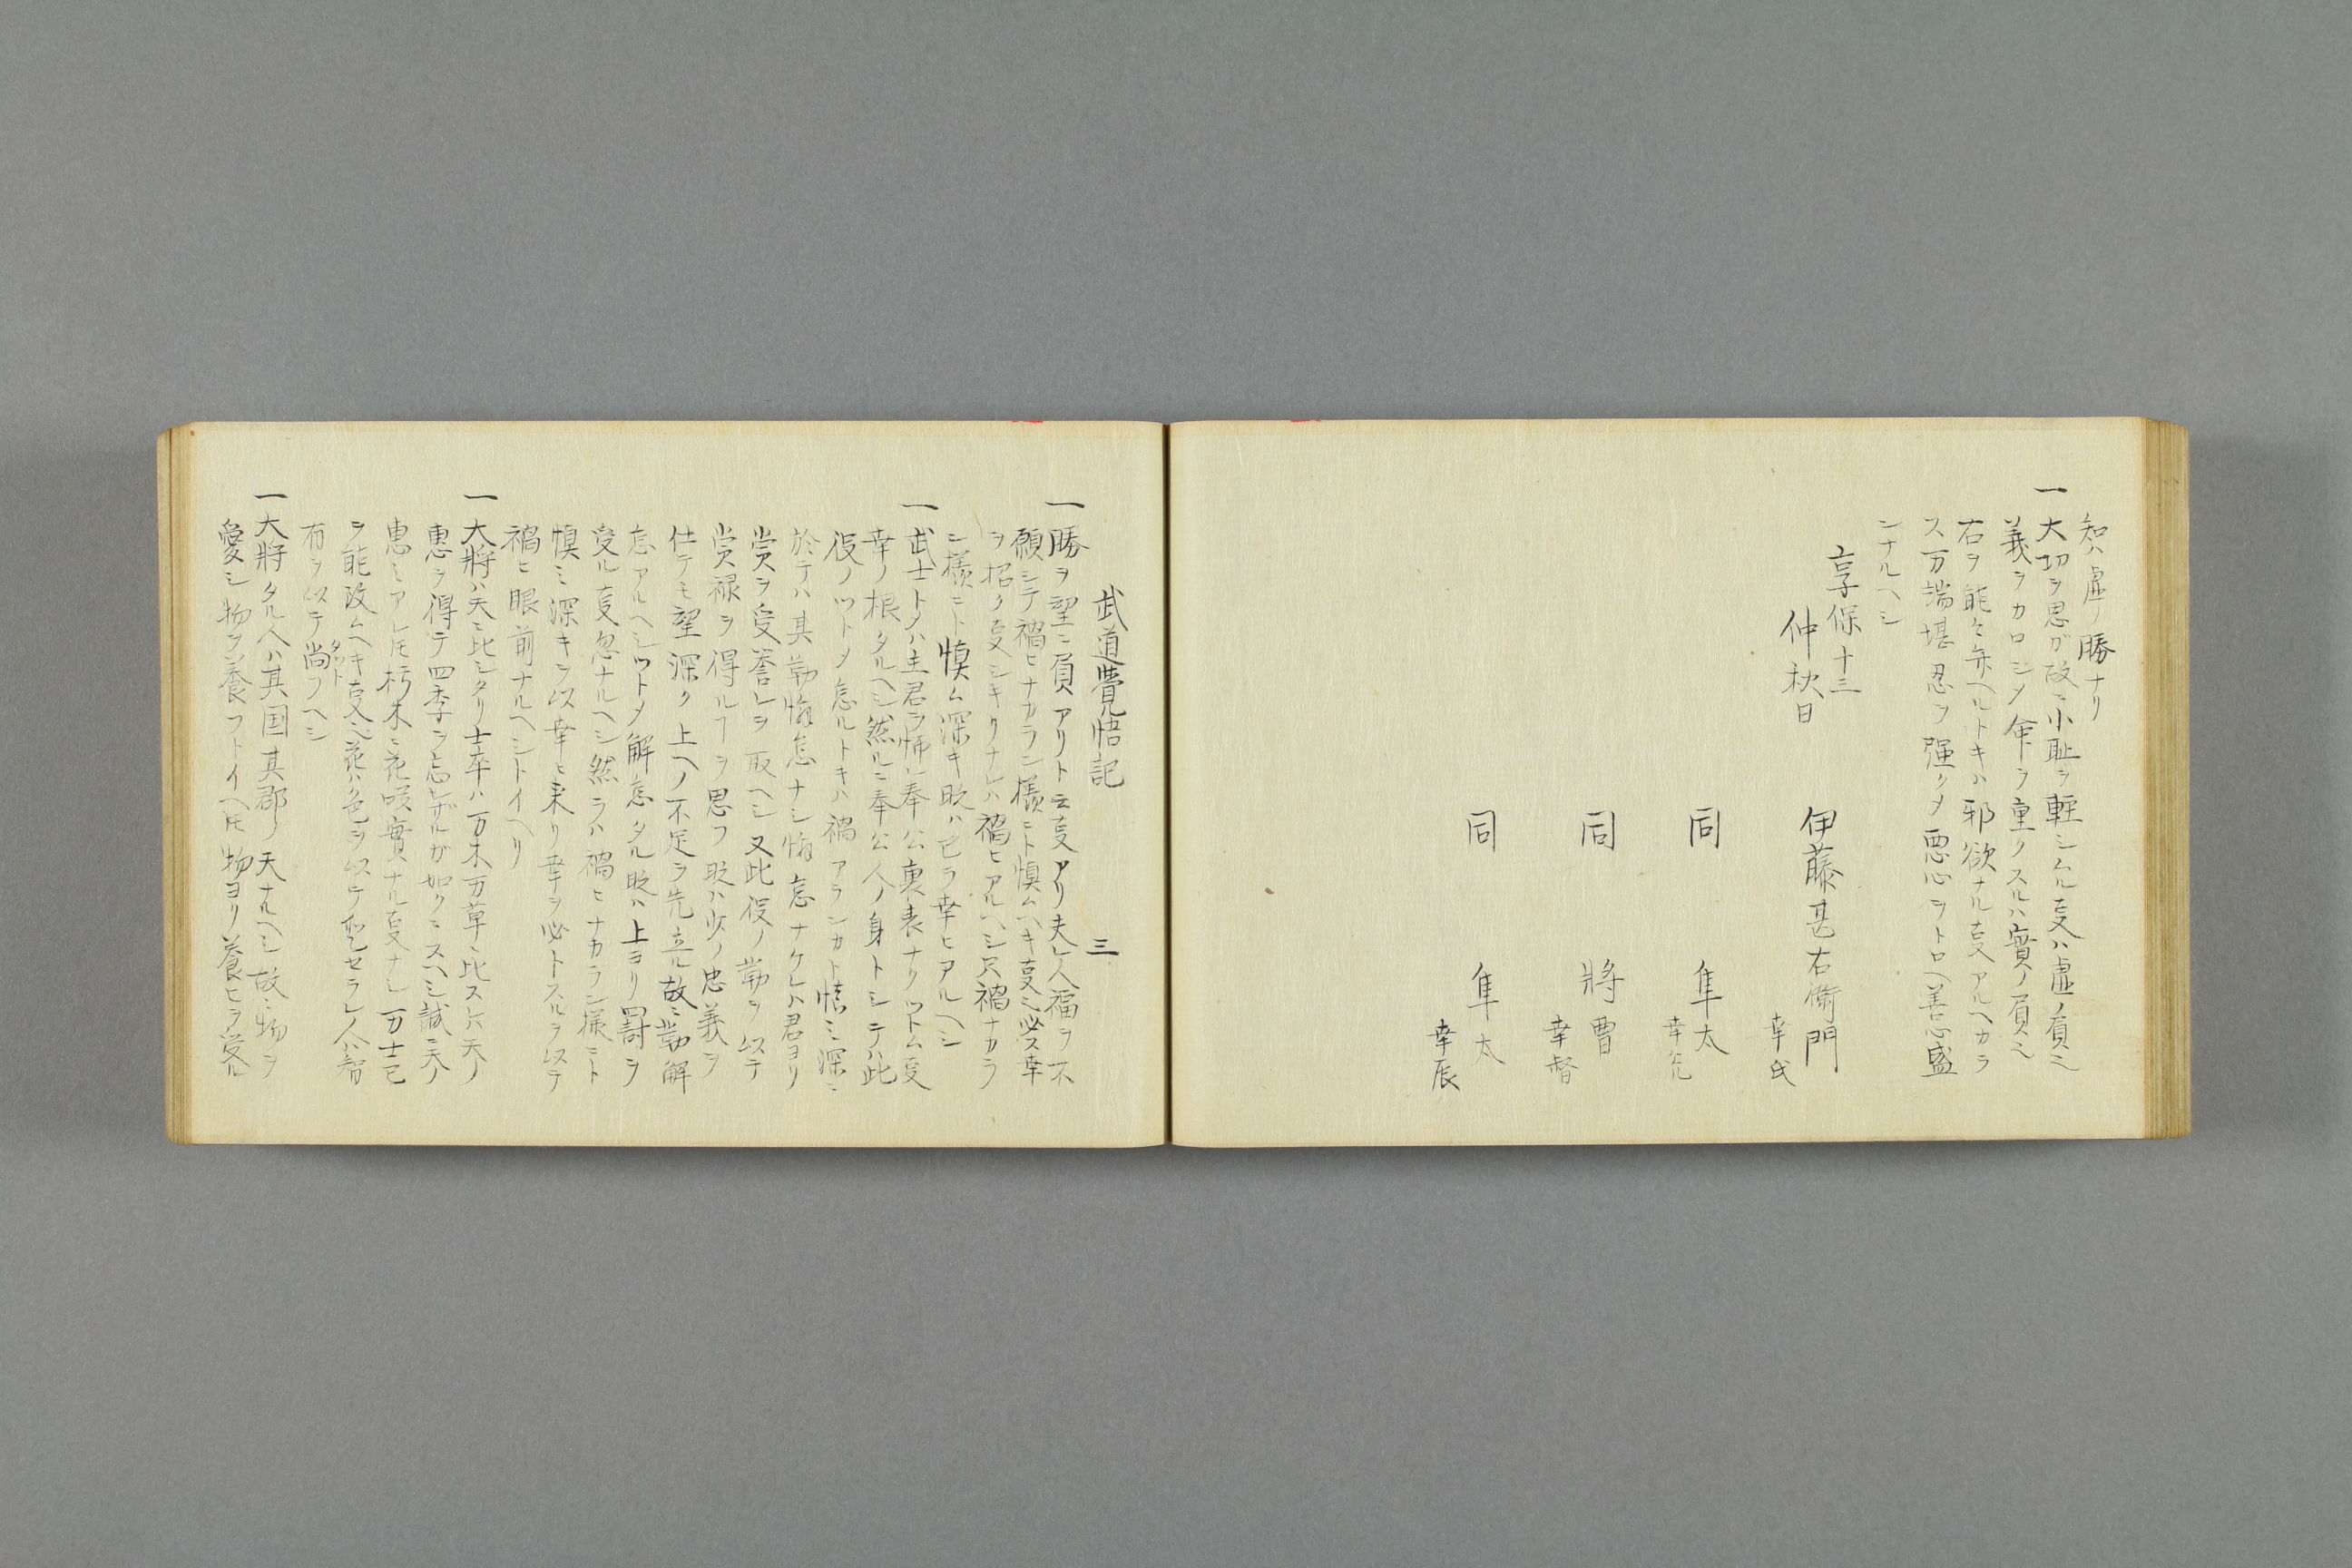 知ハ虚ノ勝ナリ
一大切ヲ思ガ故ニ小耻ヲ軽シムル叓ハ虚ノ負ニ
義ヲカロシメ命ヲ重クスルハ實ノ負ニ
右ヲ能々弁ヘルトキハ邪欲ナル叓アルヘカラ
ス万端堪忍ヲ強クメ悪心ヲトロヘ善心盛
ンナルヘシ
享保十三
仲秋日
伊藤甚右衛門
幸氏
同 隼太
幸允
同 將曹
幸督
同 隼太
幸辰
武道覺悟記 三
一勝ヲ望ニ負アリト云叓アリ夫レ人福ヲ不
願シテ禍ヒナカラン様ニト慎ムヘキ叓ニ必ス幸
ヲ招ク叓シキリナレハ禍ヒアルヘシ只禍ナカラ
ン様ニト慎ム深キ時ハ己ラ幸ヒアルヘシ
一武士トタハ主君ヲ怖レ奉公裏表ナクツトム叓
幸ノ根タルヘシ然ルニ奉公人ノ身トシテハ此
役ノツトメ怠ルトキハ禍アランカト慎ミ深ニ
於テハ其勤懈怠ナシ懈怠ナケレハ君ヨリ
賞ヲ受誉レヲ取ヘシ又此役ノ勤ヲ以テ
賞禄ヲ得ルヿヲ思フ時ハ少ノ忠義ヲ
仕テモ望深ク上ヘノ不足ヲ先立ル故ニ勤解
怠アルヘシツトメ解怠タル時ハ上ヨリ罸ヲ
受ル叓忽ナルヘシ然ラハ禍ヒナカラン様ニト
慎ミ深キヲ以幸ヒ来リ幸ヲ必トスルヲ以テ
禍ヒ眼前ナルヘシトイヘリ
一大將ハ天ニ比シタリ士卒ハ万木万草ニ比ス凡天ノ
惠ヲ得テ四季ヲ忘レザルガ如クニスヘシ誠ニ天ノ
惠ミアレ𪜈朽木ニ花咲實ナル叓ナシ万士己
ヲ能改ムヘキ叓ニ花ハ色ヲ以テ愛セラレ人ハ智
有ヲ以テ尚フヘシ
タット
一大將タル人ハ其国其郡ノ天ナルヘシ故ニ物ヲ
愛シ物ヲ養フトイヘ𪜈物ヨリ養ヒヲ受ル